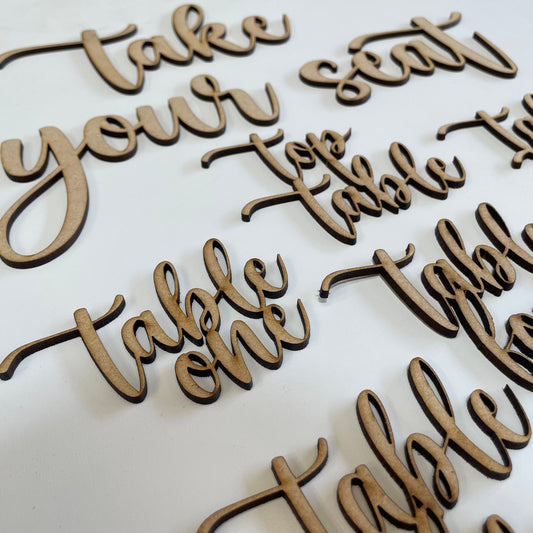 take
your
seat
top
table
table
one
table
table